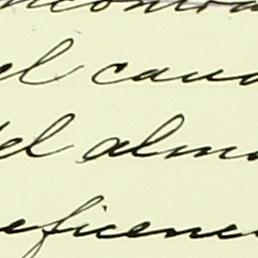 el caud
del alma
eficenci